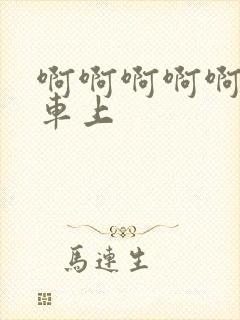 啊啊啊啊啊
車上
馬連生